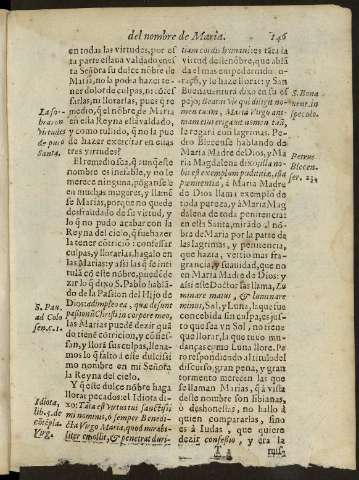 del nombre de Maria.
146
en todas las virtudes, por es
ta parte estava validado esta
Señora su dulce nõbre de
Maria, no la podra hazer te-
ner dolor de culpas, ni cõfes
sarlas, ni llorarlas, pues q̃ re
medio, q̃ el nõbre de Maria
en esta Reyna es tã validado,
y como tullido, q̃ no la pue
de hazer exercitar en estas
tres virtudes?
El remedio sea, q̃ aunq̃ este
nombre es inefable, y no le
merece ninguna, põgase le
en muchas mugeres, y llamẽ
se Marias, porque no quede
desfraldado de su virtud, y
lo q̃ no pudo acabar con la
Reyna del cielo, q̃ fue hazerla
tener cõtriciõ: confessar
culpas, y llorarlas, hagalo en
las Marias: y assi las q̃ se inti
tulã cõ este nõbre, puedẽ de
zir lo q̃ dixo S. Pablo hablã-
do de la Passion del Hijo de
Dios: adimpleo ea, quæ desunt
passionũ Christi in corpore meo,
las Marias puedẽ dezir quã
do tienẽ cõtricion, y cõfies-
san, y llorã sus culpas, llena-
mos lo q̃ faltò à este dulcissi
mo nombre en mi Señora
la Reyna del cielo.
Y q̃ este dulce nõbre haga
llorar pecados: el Idiota di-
xo: Tãta est virtus tui sanctissi
mi nominis, ò semper Benedi-
cta Virgo Maria, quod mirabi-
liter emollit, & penetrat duri-
La so-
bra con
Virtudes
de puro
Santa.
S. Pau.
ad Colo
sen. c. 1.
Idiota,
lib. 5. de
cõtẽpla.
Virg.
tiam cordis humani: es tãta la
virtud deste nõbre, que ablã
da el mas empedernido co-
raçõ, y le haze llorar; y San
Buenaventura dixo en su es
pejo; Beatus Vir qui diligit no-
men tuum, Maria Virgo ani-
mam eius irrigans nomen tuũ,
la regarà con lagrimas. Pe-
dro Blecense hablando de
Maria Madre de Dios, y Ma
ria Magdalena dixo: illa no-
bis est exemplum puditiæ, ista
pœnitentiæ, à Maria Madre
de Dios llama exemplo de
toda pureza, y à Maria Mag
dalena de toda penitencia
en estas Santa, mirado el nõ-
bre de Maria por la parte de
las lagrimas, y penitencia,
que hazia, vertio mas fra-
grancia, y suavidad, que no
en Maria Madre de Dios: y
assi este Doctor las llama, Lu
minare maius, & luminare
minus, Sol, y Luna, la que fue
concebida sin culpa, es jus-
to que sea vn Sol, no tiene
que llorar, la que tuvo mu-
danças como Luna llore. Pe-
ro respondiendo al titulo del
discurso, gran pena, y gran
tormento merecen las que
se llaman Marias, q̃ à vista
deste nombre son libianas,
ò deshonestas, no hallo à
quien compararlas, sino
es à Iudas, que quiere
dezir confessio, y era la
S. Bona
uent. in
speculo.
Petrus
Blecen-
ser. 23.
T 2
ruis-